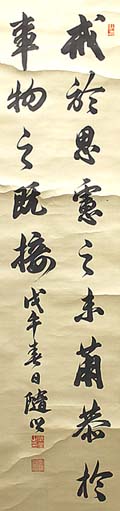 戒於思慮之未萠恭於
事物之既接戊午春日隨鷗